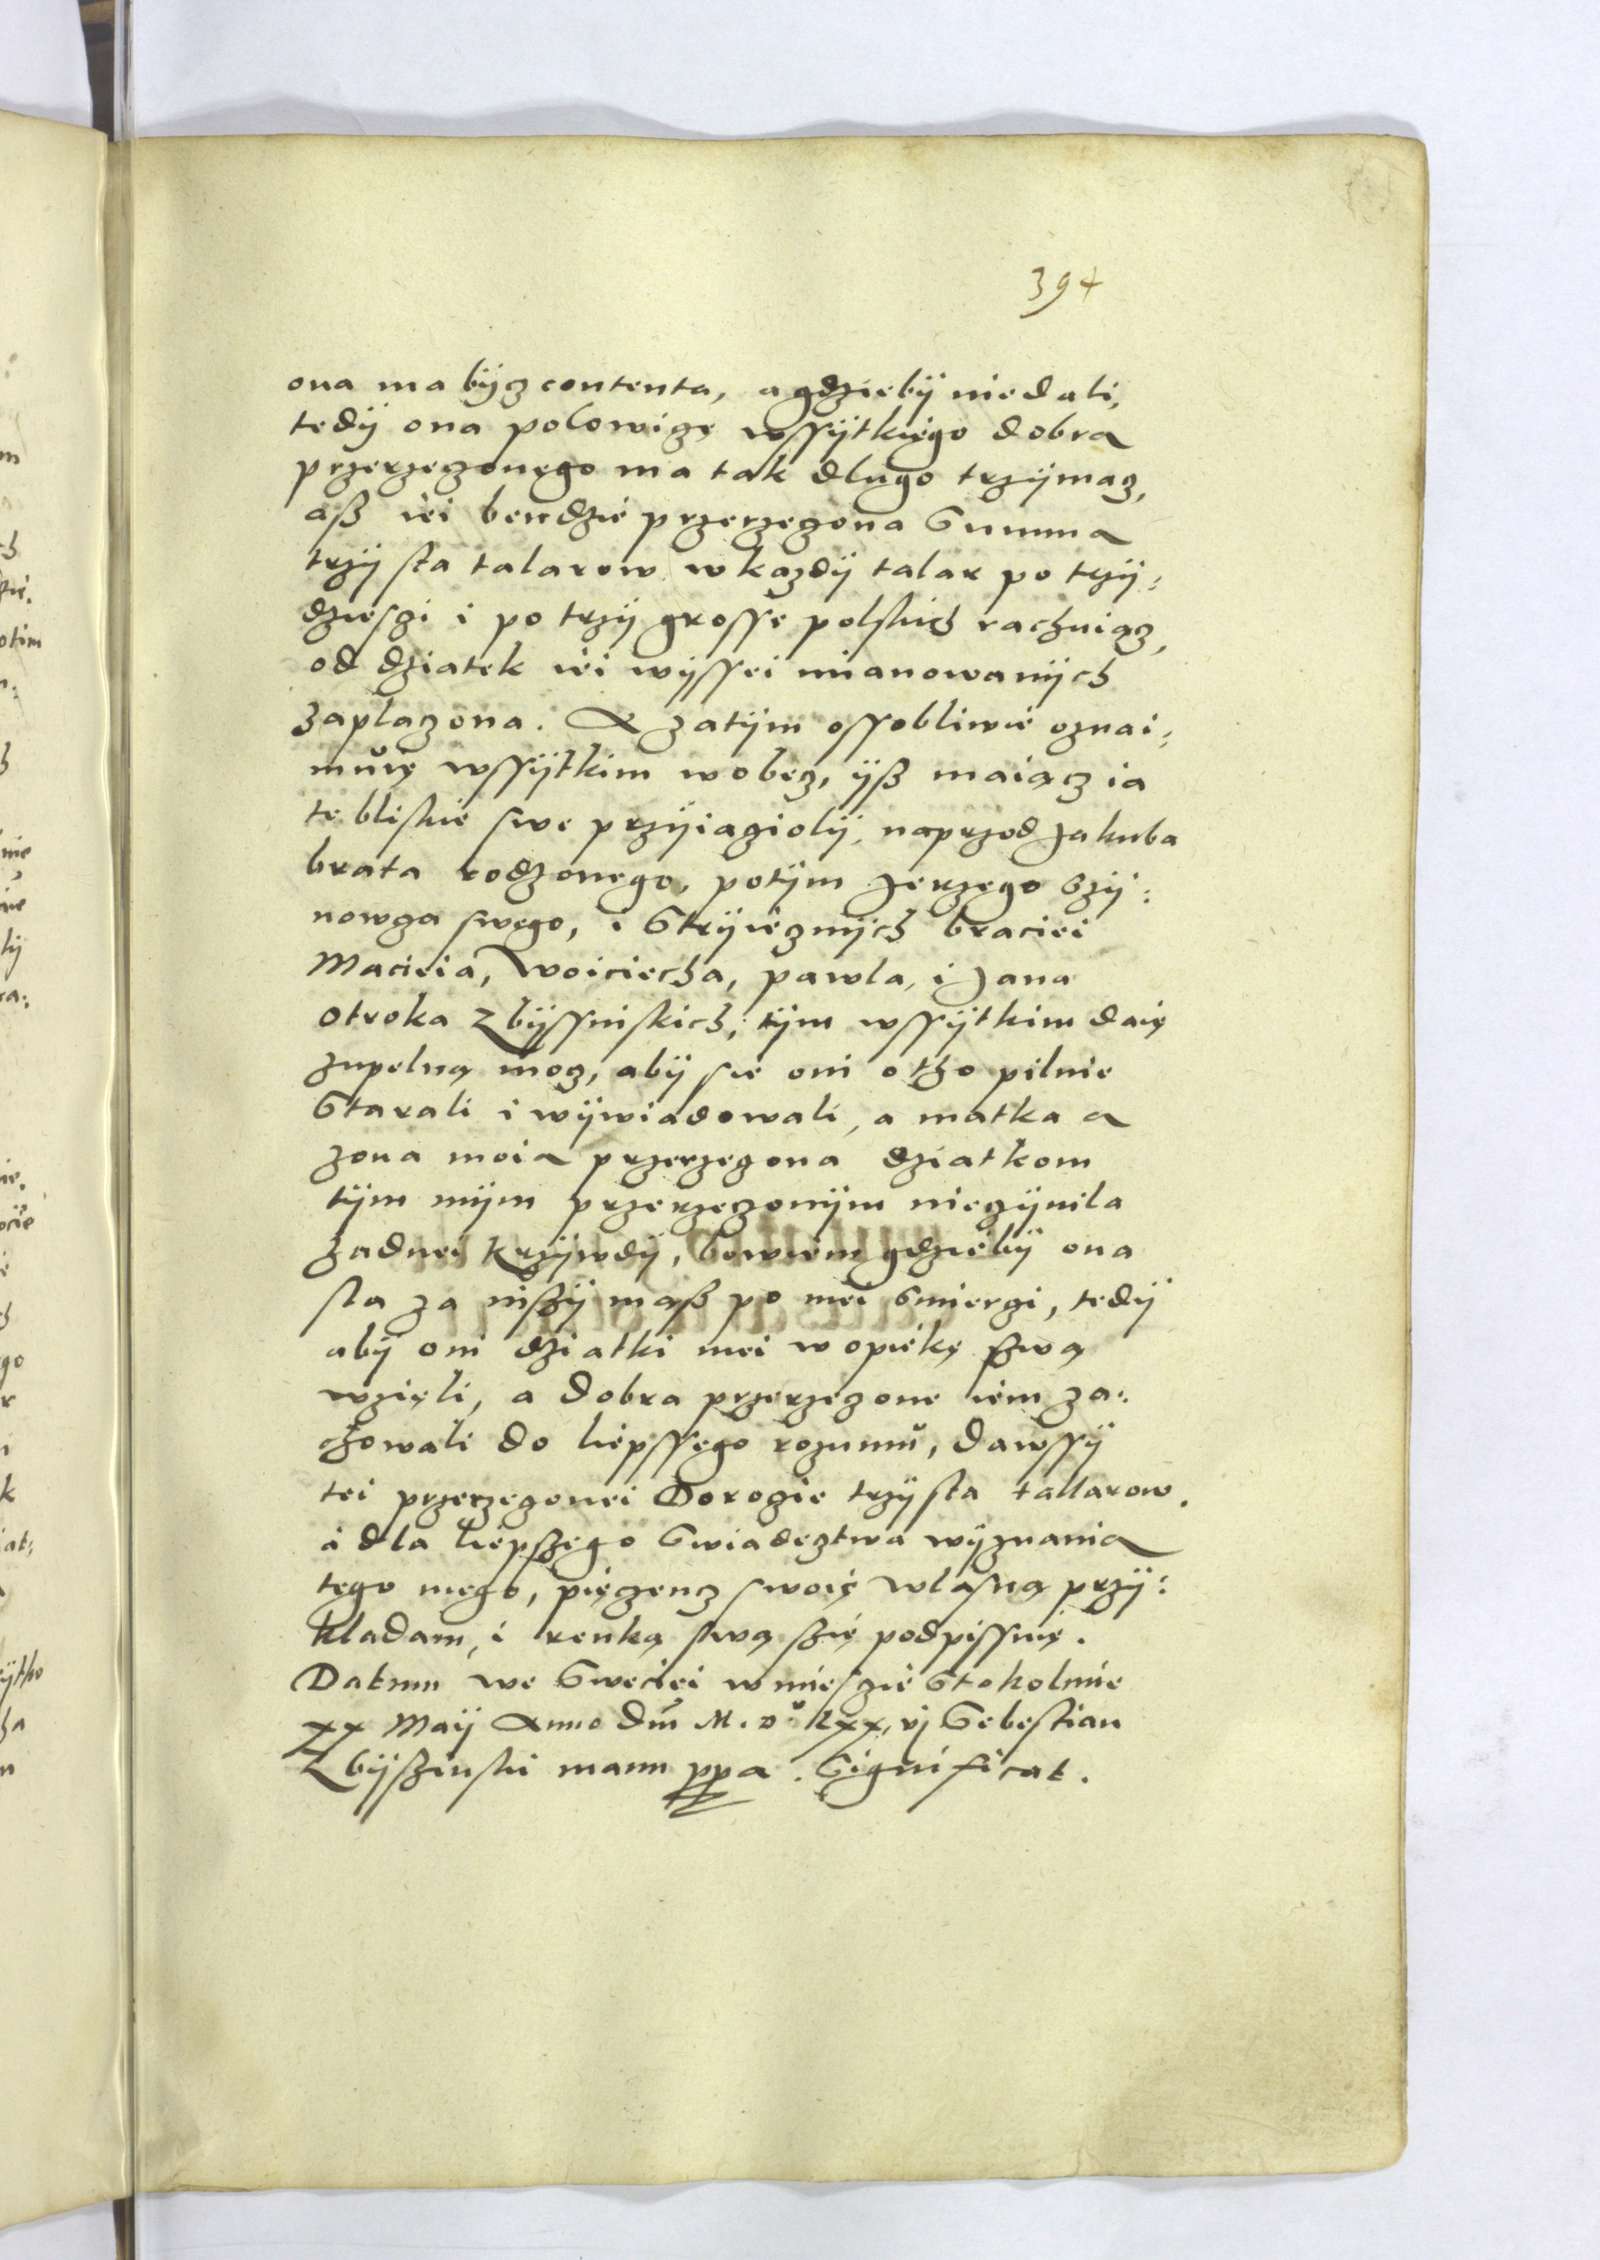 394
ona ma bÿcz contenta, a gdziebÿ niedali,
tedÿ ona polowiczę wssÿtkiego dobra
przerzeczonego ma tak dlugo trzÿmacz,
aß iei bendzie przerzeczona Summa
trzÿ sta talarow w kazdÿ talar po trzÿ:
dziesczi i po trzÿ grosse polskich rachuiącz,
od dziatek iei wÿssei mianowanÿch
zaplaczona. A zatÿm ossobliwie oznai:
muię wssÿtkim wobecz, ÿß maiącz ia
te bliskie swe przÿiacziolÿ, naprzod Jakuba
brata rodzonego, potÿm Jerzego Szÿ:
nowcza swego, i Strÿiecznÿch braciei
Macieia, Woiciecha, pawla, i Jana
Otroka Zbÿssniskich; tÿm wssÿtkim daię
zupelną mocz, abÿ sie oni otho pilnie
Starali i wÿwiadowali, a matka a
zona moia przerzeczona dziatkom
tÿm mÿm przerzeczonÿm nieczÿnila
zadnei krzÿwdÿ, bowiem gdziebÿ ona
sla za inszÿ maß po mei Smierczi, tedÿ
abÿ oni dziatki mei w opiekę szwą
wzięli, a dobra przerzeczone iem za:
chowali do liepssego rozumu, dawssÿ
tei przerzeczonei Dorogie trzÿ sta tallarow.
a dla liepszego Swiadecztwa wÿznania
tego mego, pięczencz swoię wlasną przÿ:
kladam, i renką swą szię podpissuię.
Datum we Sweciei w miesczie Stokolmie
xx Maÿ Anno dm̄ M. Dᵒ Lxx, vj Sebestian
Zbÿszinski manu ppa. Significat.